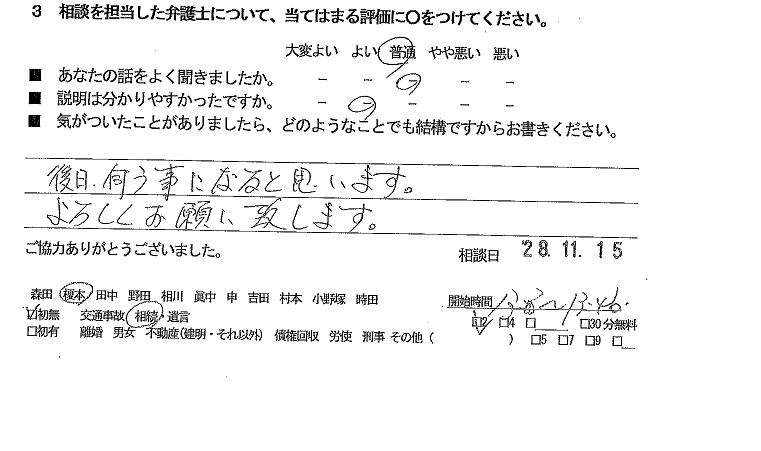 3 相談を担当した弁護士について、当てはまる評価に〇をつけてください。
大変よい よい 普通 やや悪い 悪い
■ あなたの話をよく聞きましたか。 － － － － －
■ 説明は分かりやすかったですか。 － － － － －
■ 気がついたことがありましたら、どのようなことでも結構ですからお書きください。
後日、伺う事になると思います。
よろしくお願い致します。
ご協力ありがとうございました。 相談日 '28.11.15
森田 榎本 田中 野田 相川 眞中 申 吉田 村本 小野塚 時田 開始時間
☑初無 交通事故 相続・遺言 ☑2 □4 □ □30分無料
□初有 離婚 男女 不動産(建明・それ以外) 債権回収 労使 刑事 その他 ( ) □5 □7 □9 □